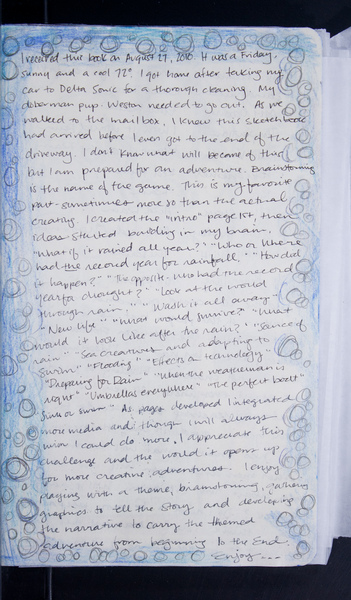 I received this book on August 27, 2010. It was a Friday,
sunny and a cool 72°. I got home after taking my
car to Delta Sonic for a thorough cleaning. My
doberman pup Weston needed to go out. As we
walked to the mailbox, I knew this sketchbook
had arrived before I even got to the end of the
driveway. I don't know what will become of this
but I am prepared for an adventure. Brainstorming
is the name of the game. This is my favorite
part - sometimes more so than the actual
creating. I created the "intro" page 1st, then
ideas started building in my brain.
"What if it rained all year?" "Who or Where
had the record year for rainfall." "How did
it happen?" "The opposite. Who had the record
year for drought?" "Look at the world
through rain." "Wash it all away."
"New life" "What would survive?" "What
would it look like after the rain?" "Science of
rain" "Sea Creatures and adapting to
swim" "Flooding" "Effects on technology"
"Preparing for Rain" "When the weatherman is
right" "Umbrellas everywhere" "The perfect boat"
"Sink or swim" As pages developed I integrated
more media and though I will always
wish I could do more, I appreciate this
challenge and the world it opens up
for more creative adventures. I enjoy
playing with a theme, brainstorming, gathering
graphics to tell the story and developing
the narrative to carry the themed
adventure from beginning to the End.
Enjoy ---